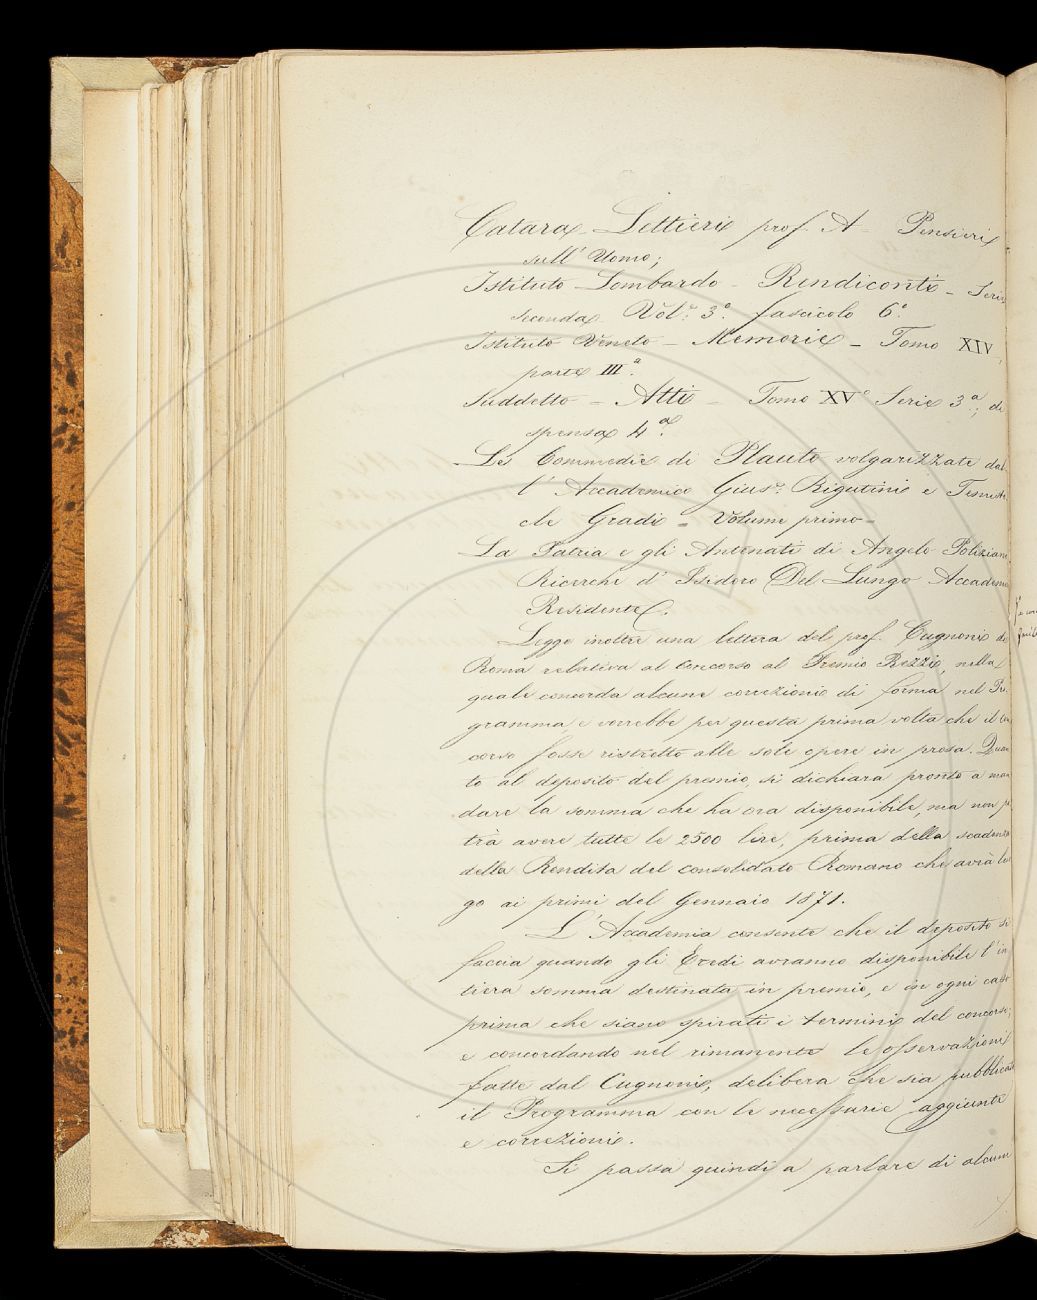 Catara-Lettieri prof. A- Pensieri
sull' Uomo;
Istituto Lombardo - Rendiconti - Serie
seconda Vol: 3.° fascicolo 6.°
Istituto Veneto - Memorie - Tomo XIV,
parte III.a
Suddetto - Atti - Tomo XV° Serie 3.a; di
spensa 4.a
Le Commedie di Plauto volgarizzate dal
l'Accademico Gius: Rigutini e Temisto
cle Gradi - Volume primo -
La Patria e gli Antenati di Angelo Poliziano
Ricerche d'Isidoro Del Lungo Accademico
Residente.
Legge inoltre una lettera del prof. Cugnoni di
Roma relativa al Concorso al Premio Rezzi, nella
quale concorda alcune correzioni di forma nel Pro
gramma e vorrebbe per questa prima volta che il con
corso fosse ristretto alle sole opere in prosa. Quan
to al deposito del premio, si dichiara pronto a man
dare la somma che ha ora disponibile, ma non po
trà avere tutte le 2500 lire, prima della scadenza
della Rendita del consolidato Romano che avrà luo
go ai primi del Gennaio 1871.
L'Accademia consente che il deposito si
faccia quando gli Eredi avranno disponibile l'in
tiera somma destinata in premio, e in ogni caso
prima che siano spirati i termini del concorso;
e concordando nel rimanente le osservazioni
fatte dal Cugnoni, delibera che sia pubblicato
il Programma con le necessarie aggiunte
e correzioni.
Si passa quindi a parlare di alcune